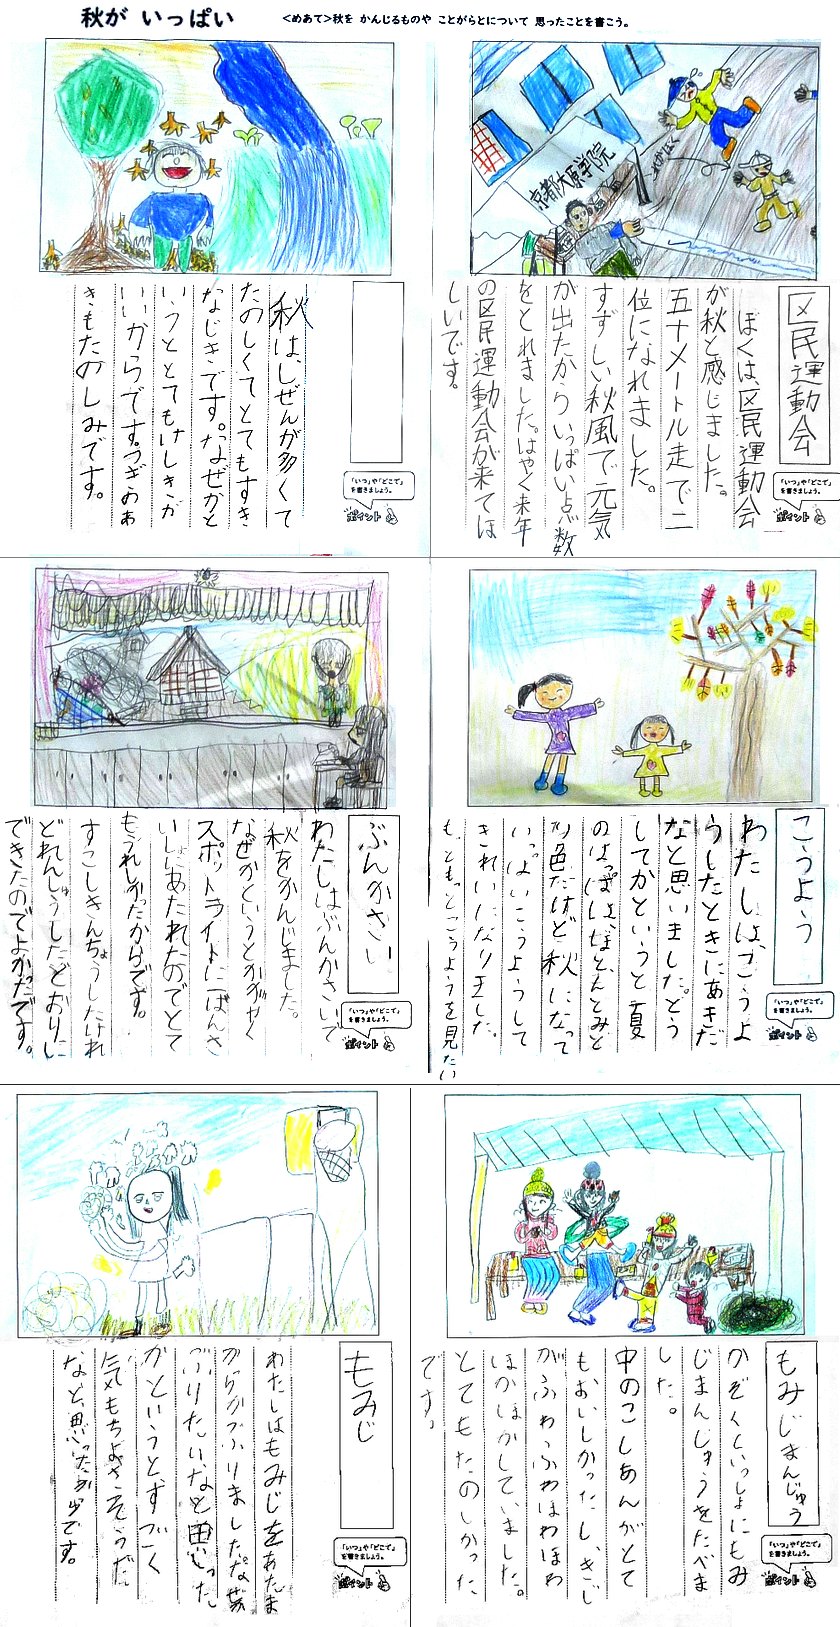 秋が いっぱい
<めあて>秋を かんじるものや ことがらとについて 思ったことを書こう。
京都大原学院
区民運動会
ぼくは、区民運動会
が秋と感じました。
五十メートル走で二
位になれました。
すずしい秋風で元気
が出たからいっぱい点数
をとれました。はやく来年
の区民運動会が来てほ
しいです。
「いつ」や「どこで」
を書きましょう。
ポイント
秋は、しぜんが多くて
たのしくてとてもすき
なじきです。なぜかと
いうととてもけしきが
いいからです。つぎのあ
きもたのしみです。
「いつ」や「どこで」
を書きましょう。
ポイント
こうよう
わたしは、こうよ
うしたときにあきだ
なと思いました。どう
してかというと夏
のはっぱは、ほとんどみど
り色だけど秋になって
いっぱいこうようして
きれいになりました。
もっともっとこうようを見たい
「いつ」や「どこで」
を書きましょう。
ポイント
ぶんかさい
わたしはぶんかさいで
秋をかんじました。
なぜかというとかがやく
スポットライトにいちばんさ
いしょにあたれたのでとて
もうれしかったからです。
すこしきんちょうしたけれ
どれんしゅうしたどおりに
できたのでよかったです。
「いつ」や「どこで」
を書きましょう。
ポイント
もみじまんじゅう
かぞくといっしょにもみ
じまんじゅうをたべま
した。
中のこしあんがとて
もおいしかったし、きじ
がふわふわほわほわ
ほかほかしていました。
とてもたのしかった
です。
「いつ」や「どこで」
を書きましょう。
ポイント
もみじ
わたしはもみじをあたま
からかぶりましたなぜ
ぶりたいなと思った
かというと、すごく
気もちよさそうだ
なと、思ったからです。
「いつ」や「どこで」
を書きましょう。
ポイント